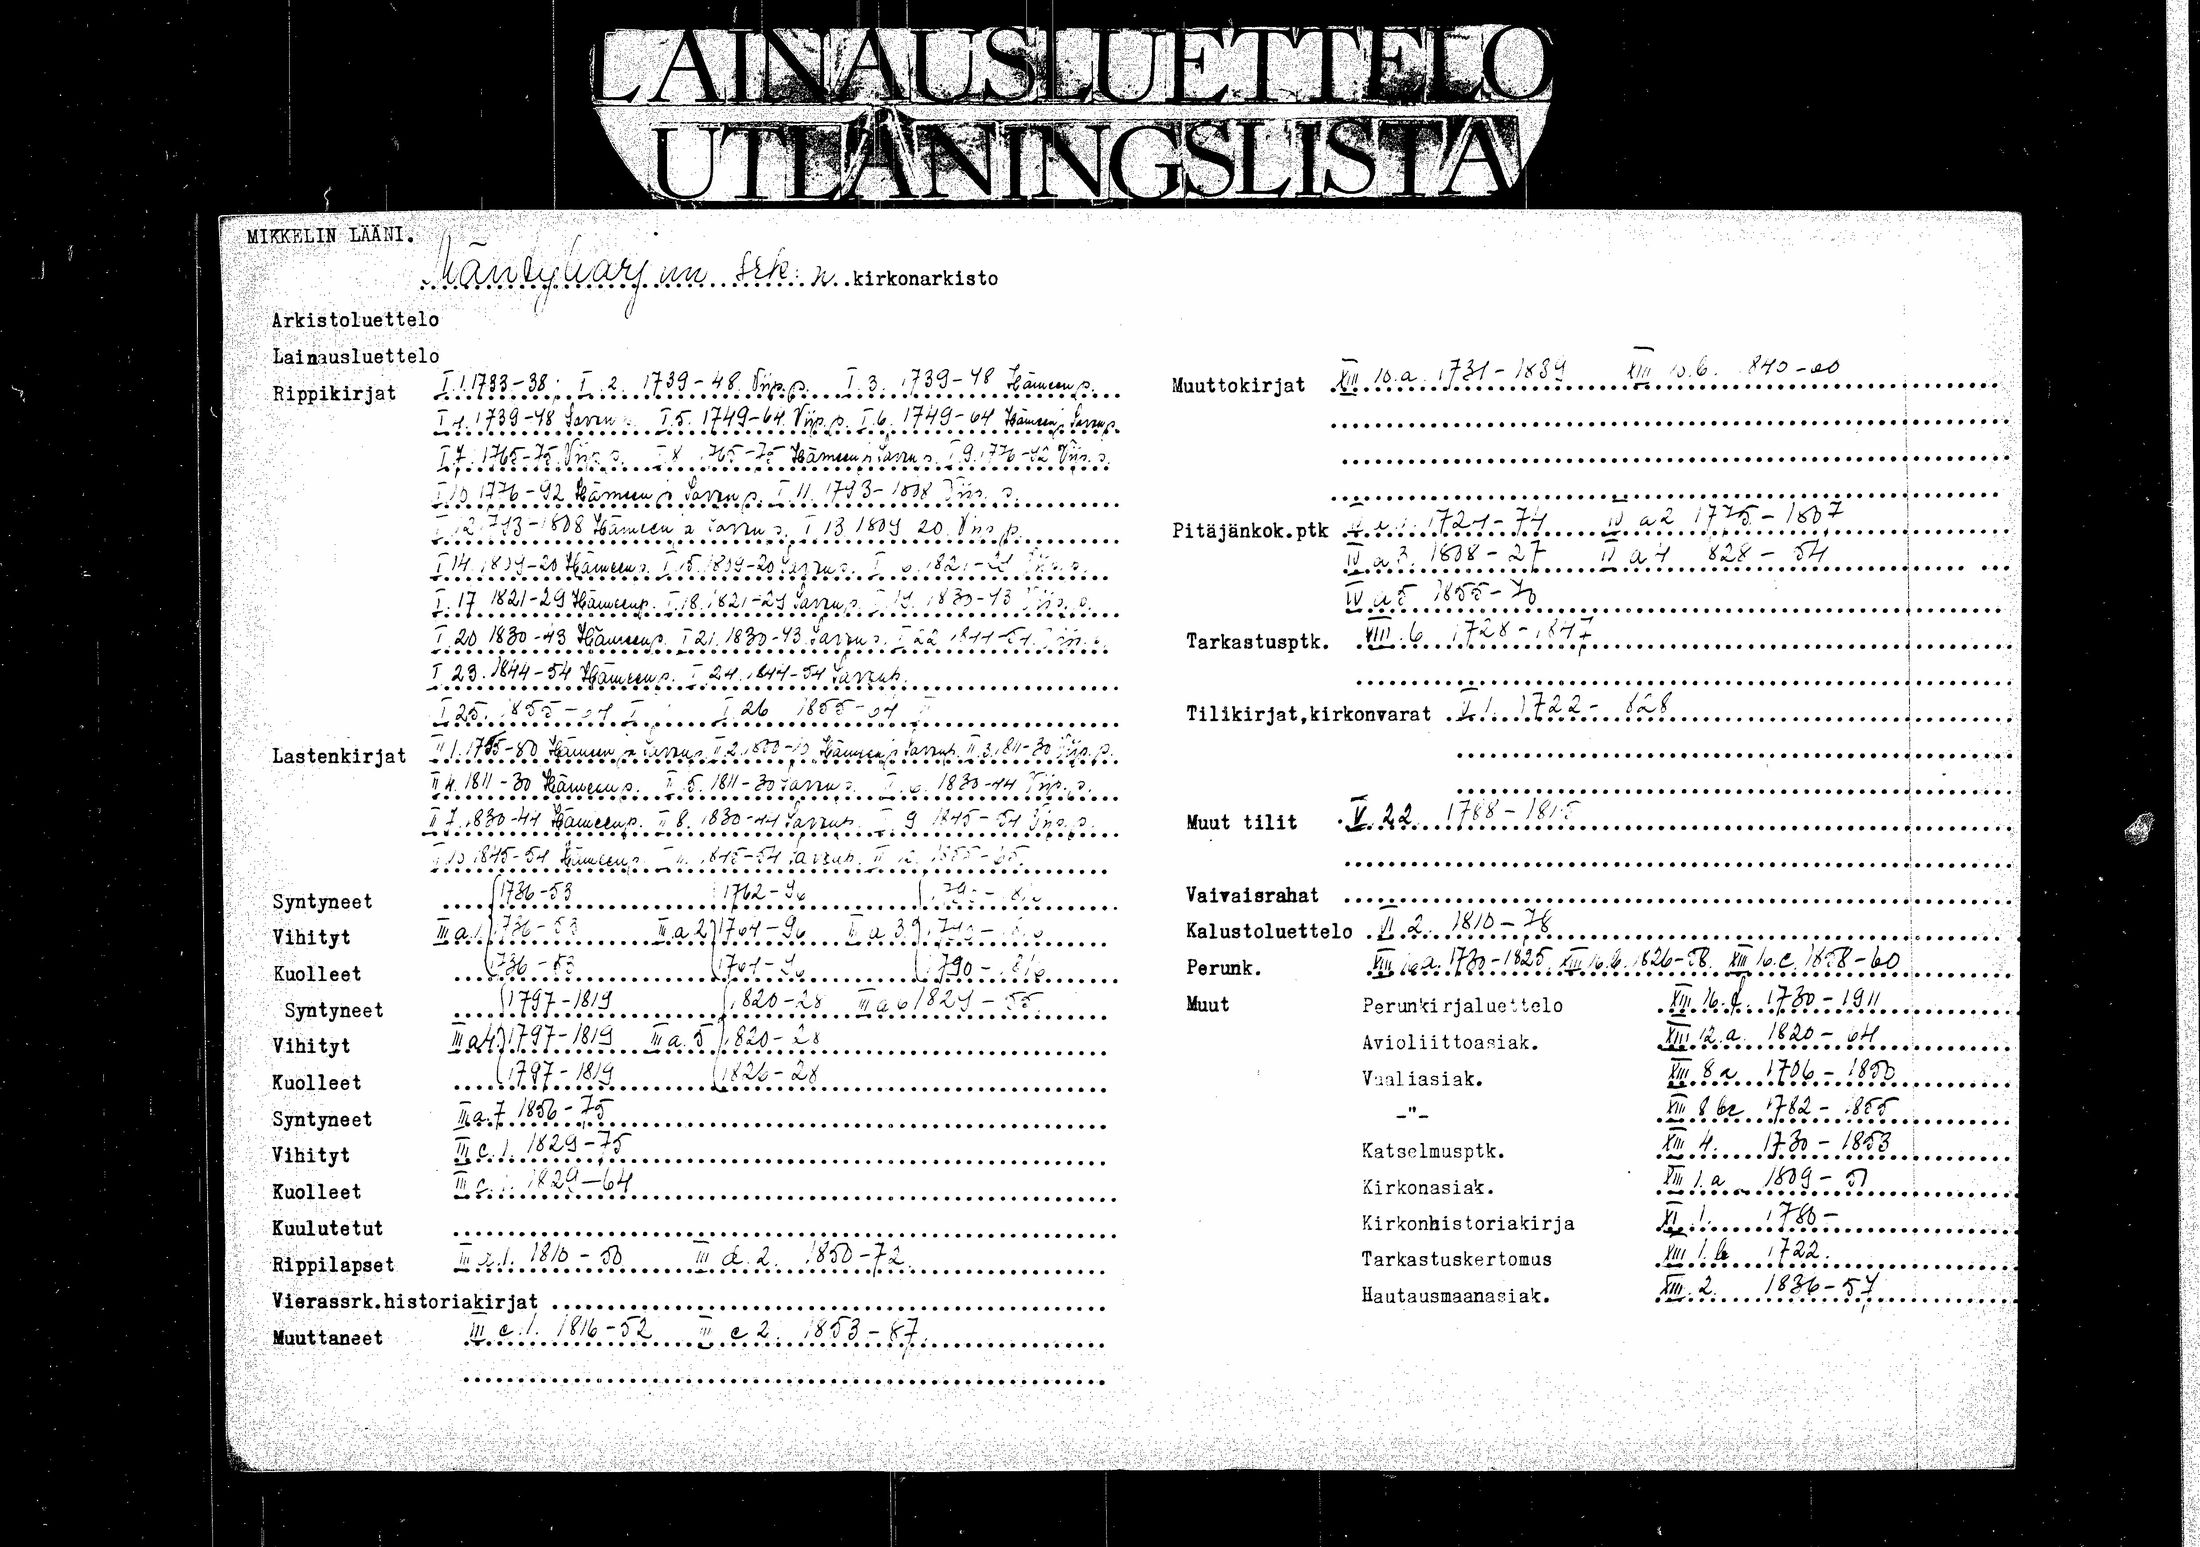 LAINAUSLUETTELO
UTLÅNINGSLISTA
MIKKELIN LÄÄNI.
Mäntyharjun srk:n kirkonarkisto
Arkistoluettelo
Lainausluettelo
Rippikirjat I.1.1733-38. I.2. 1739-48. Viip.p. I.3. 1739-48 Hämeen p.
I.4.1739-48 Savon p. I.5.1749-64 Viip.p. I.6.1749-64 Hämeen p. Savon p.
I.7.1765-75 Viip.p. I.8 1765-75 Hämeen ja Savon p. I.9.1776-92 Viip.p.
I.10.1776-92 Hämeen ja Savon p. I.11.1793-1808 Viip.p.
I.12.1793-1808 Hämeen ja Savon p. I 13 1809-20. Viip.p.
I.14.1809-20 Hämeen p. I.15.1809-20 Savon p. I.16.1821-29 Viip.p.
I.17 1821-29 Hämeen p. I.18.1821-29 Savon p. I.19.1830-43 Viip.p.
I.20 1830-43 Hämeen p. I.21.1830-43 Savon p. I 22 1844-54 Viip.p.
I 23.1844-54 Hämeen p. I 24.1844-54 Savon p.
I 25. 1855-64 I I 26 1855-64 II
Lastenkirjat II 1.1795-80 Hämeen ja Savon p. II.2.1800-10 Hämeen ja Savon p. II.3.1811-30 Viip.p.
II 4.1811-30 Hämeen p. II.5.1811-30 Savon p. II.6.1830-44 Viip.p.
II 7.1830-44 Hämeen p. II 8.1830-44 Savon p. II 9 1845-54 Viip.p.
II.10 1845-54 Hämeen p. II 11.1845-54 Savon p. II 12.1855-65.
Syntyneet 1736-53 1762-96
Vihityt III a.1. 1736-53 III a.2 1764-96 III a 3.
Kuolleet 1736-53 1764-96 1790-1816
Syntyneet 1797-1819 1820-28 III a 6 1829-55
Vihityt III a 4. 1797-1819 III a.5 1820-28
Kuolleet 1797-1819 1826-28
Syntyneet III a.7 1856-75
Vihityt III c.1. 1829-75
Kuolleet III c.1. 1829-64
Kuulutetut
Rippilapset III d.1. 1810-50 III d.2. 1850-72
Vierassrk.historiakirjat
Muuttaneet III e.1. 1816-52 III e 2. 1853-87.
Muuttokirjat XIII 10.a. 1731-1839 XIII 10.b. 1840-60
Pitäjänkok.ptk IV a.1. 1724-74 IV a 2 1775-1807
IV a 3. 1808-27 IV a 4 1828-54
IV a 5 1855-70
Tarkastusptk. VIII.6. 1728-1847
Tilikirjat,kirkonvarat V.1. 1722-1828
Muut tilit V.22. 1788-1815
Vaivaisrahat
Kalustoluettelo VI.2. 1810-78
Perunk. XIII 16.a. 1730-1825. XIII 16.b. 1826-58. XIII 16.c. 1858-60
Muut Perunkirjaluettelo XIII.16.f. 1730-1911
Avioliittoasiak. XIII 12.a. 1820-64
Vaaliasiak. XIII 8 a 1706-1850
-"- XIII 8 bc 1782-1855
Katselmusptk. XIII 4. 1730-1853
Kirkonasiak. XIII 1.a 1809-51
Kirkonhistoriakirja XI.1. 1780-
Tarkastuskertomus XIII 1.b 1722.
Hautausmaanasiak. XIII.2. 1836-57